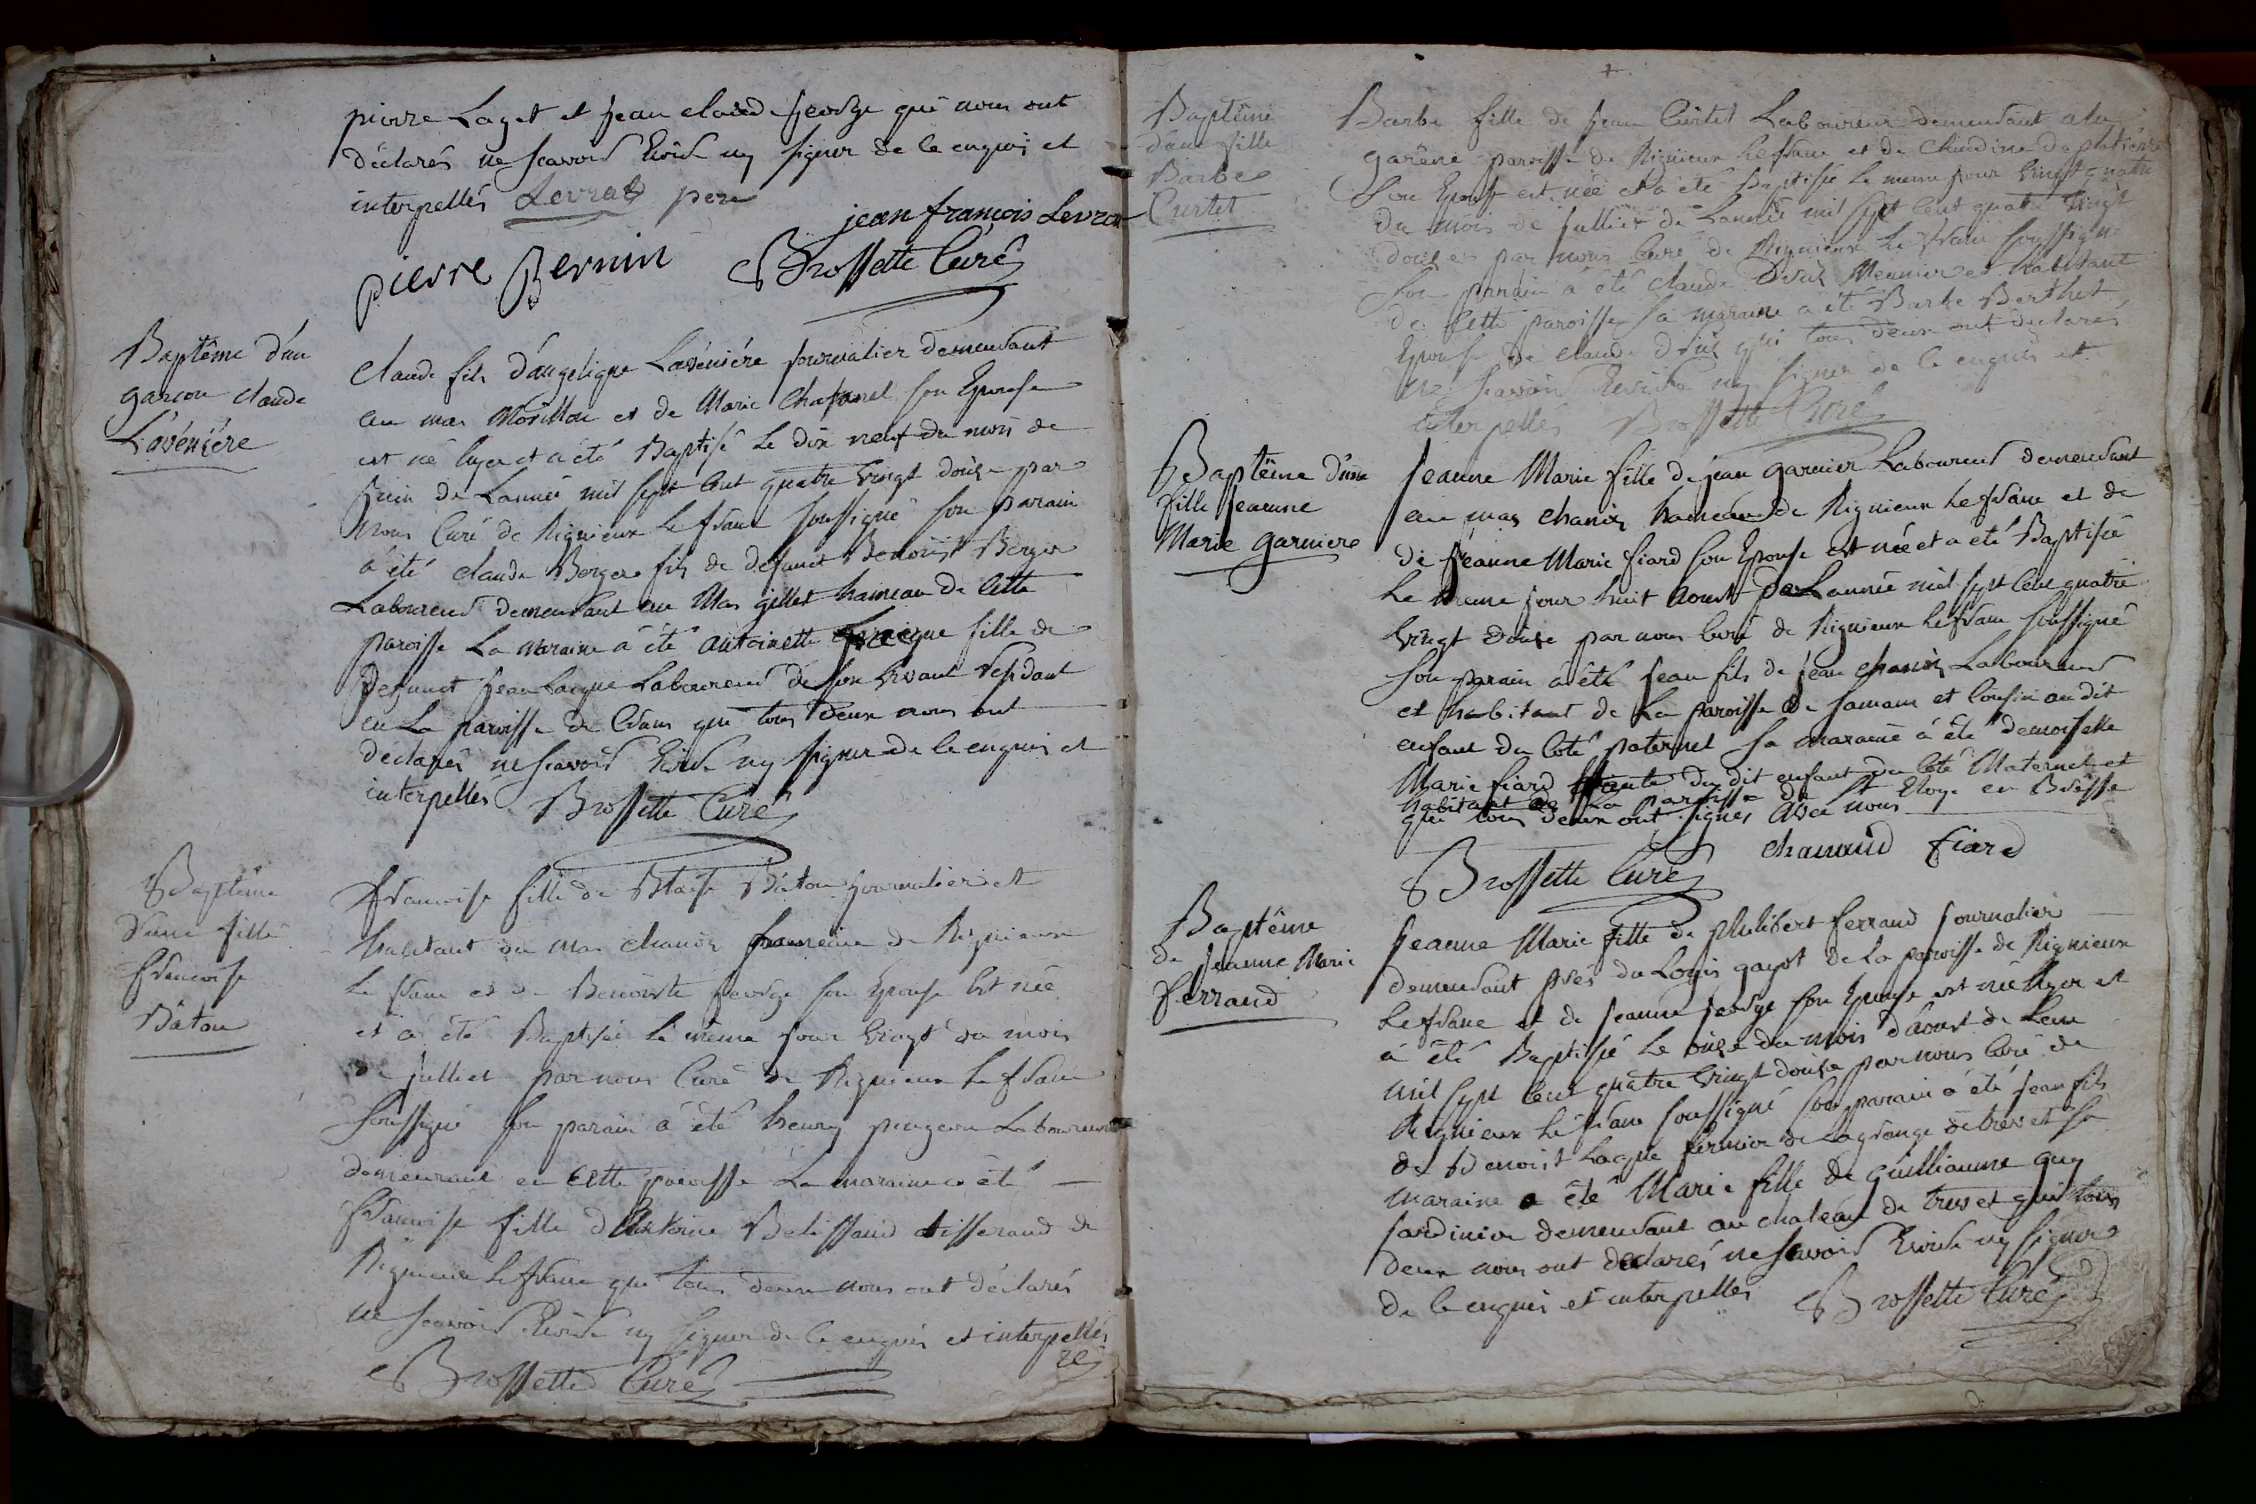 pierre Laget et jean claude george qui nous ont
déclarés ne scavoir Ecrire ny signer de le enquis et
interpellés Levrat pere
jean francois Levrat
pierre Bernin Brossette Curé
Baptême d'un
garcon claude
Lavénière
claude fils d'angelique Lavénière journalier demeurant
au mas Morillon et de Marie Chatanel son Epouse
est né hyer et a été Baptisé le dix neuf du mois de
juin de Lannée mil sept Cent quatre vingt douze par
nous Curé de Rignieux le franc soussigné son parain
a été claude Berger fils de defunct Benoist Berger
Laboureur demeurant au Mas gillet hameau de Cette
paroisse La maraine a été antoinette fille de
defunct jean Lacque Laboureur de son vivant residant
en La paroisse de Crans qui tous deux nous ont
déclarés ne scavoir Ecrire ny signer de le enquis et
interpellés Brossette Curé
Baptême
d'une fille
francoise
Bâton
francoise fille de Blaise Bâton journalier et
habitant du mas chanoz hameau de Rignieux
le franc et de Benoiste george son Epouse Est née
et a été Baptisée le même jour vingt du mois
de julliet par nous Curé de Rignieux le franc
soussigné son parain a été henry pingeon Laboureur
demeurant en Cette paroisse La maraine a été
francoise fille d'Antoine Belissand tisserand de
Rignieux le franc qui tous deux nous ont déclarés
ne scavoir Ecrire ny signer de le enquis et interpellés
Brossette Curé
Baptême
d'une fille
Barbe
Curtet
Barbe fille de jean Curtet Laboureur demeurant a la
garêne paroisse de Rignieux le franc et de Claudine deplatière
son Epouse est née et a été Baptisée le meme jour vingt quatre
du mois de julliet de Lannée mil sept Cent quatre vingt
douze par nous Curé de Rignieux le franc soussigné
son parain a été claude Meunier et habitant
de Cette paroisse sa maraine a été Barbe Berthet
Epouse de claude qui tous deux ont declarés
ne scavoir Ecrire ny signer de le enquis et
interpellés Brossette Curé
Baptême d'une
fille jeanne
Marie garniere
jeanne Marie fille de jean garnier Laboureur demeurant
au mas chanoz hameau de Rignieux le franc et de
de jeanne Marie fiard son Epouse est née et a été Baptisée
le meme jour huit aoust de Lannée mil sept Cent quatre
vingt douze par nous Curé de Rignieux le franc soussigné
son parain a été jean fils de jean Laboureur
et habitant de La paroisse de samans et Cousin audit
enfant du Coté paternel sa maraine a été demoiselle
Marie fiard tante du dit enfant du Coté Maternel et
habitant de La paroisse de St Eloy en Bresse
qui tous deux ont signés avec nous
chanaud fiard
Brossette Curé
Baptême
de jeanne Marie
ferrand
jeanne Marie fille de philibert ferrand journalier
demeurant près du Logis gayot de La paroisse de Rignieux
le franc et de jeanne george son Epouse est née hyer et
a été Baptisée le onze du mois d'aoust de Lan
mil sept Cent quatre vingt douze par nous Curé de
Rignieux le franc soussigné son parain a été jean fils
de Benoist Lacque fermier de Lagrange detreve et sa
maraine a été Marie fille de guilliaume guy
jardinier demeurant au chateau de treve et qui tous
deux nous ont declarés ne scavoir Ecrire ny signer
de le enquis et interpellés Brossette Curé